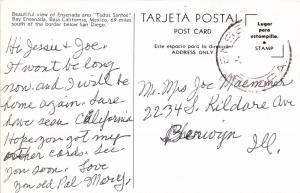 Beautiful view of Ensenada and "Todos Santos"
Bay Ensenada, Baja California, Mexico, 69 miles
south of the border below San Diego.
Hi Jessie & Joe.
It wont be long
now and I will be
home again. Sure
have seen California
Hope you got my
other cards. See
you soon. Love
you old Pal Marcy.
TARJETA POSTAL
POST CARD
Este espacio para la dirección
ADDRESS ONLY
Lugar
para
estampilla
STAMP
Mr. Mrs Joe Maemmer
2234 S. Kildare Ave
Berwyn
Ill.